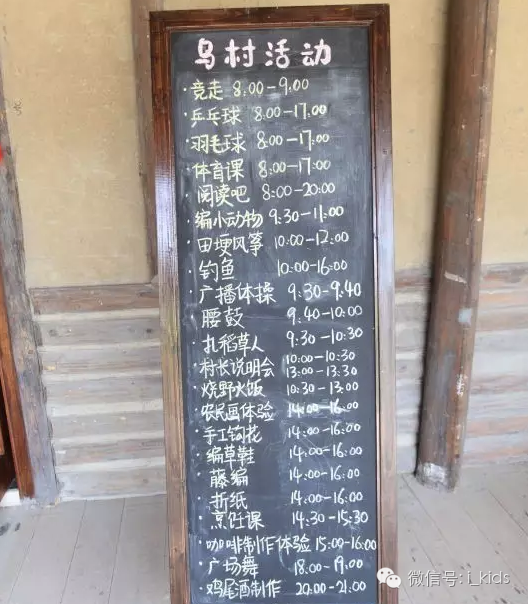 乌村活动
·竞走 8:00-9:00
·乒乓球 8:00-17:00
·羽毛球 8:00-17:00
·体育课 8:00-17:00
·阅读吧 8:00-20:00
·编小动物 9:30-11:00
·田埂风筝 10:00-12:00
·钓鱼 10:00-16:00
·广播体操 9:30-9:40
·腰鼓 9:40-10:00
·扎稻草人 9:30-10:30
·村长说明会 10:00-10:30
13:00-13:30
·烧野火饭 10:30-13:00
·农民画体验 14:00-16:00
·手工钩花 14:00-16:00
·编草鞋 14:00-16:00
·藤编 14:00-16:00
·折纸 14:00-16:00
·烹饪课 14:30-15:30
·咖啡制作体验 15:00-16:00
·广场舞 18:00-19:00
·鸡尾酒制作 20:00-21:00
微信号: i_kids